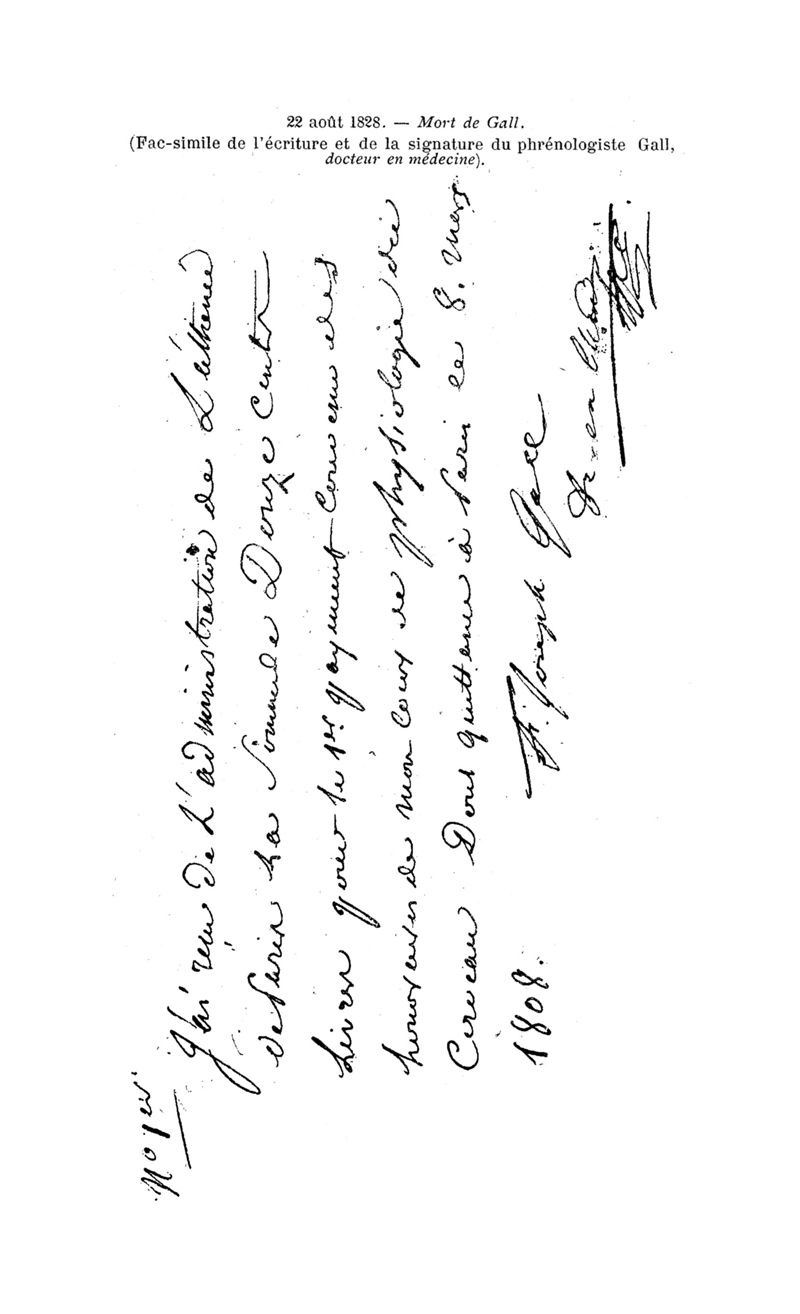 22 août 1828. — Mort de Gall.
(Fac-simile de l'écriture et de la signature du phrénologiste Gall,
docteur en médecine).
J'ai reçu de L'administration de L'athenée
de Paris La Somme de Douze Cents
Livres pour le 1er payement convenu des
honoraires de mon cours de physiologie du
Cerveau Dont quittance à Paris ce 8. Mars
1808.
Fr. Joseph Gall
Dr en